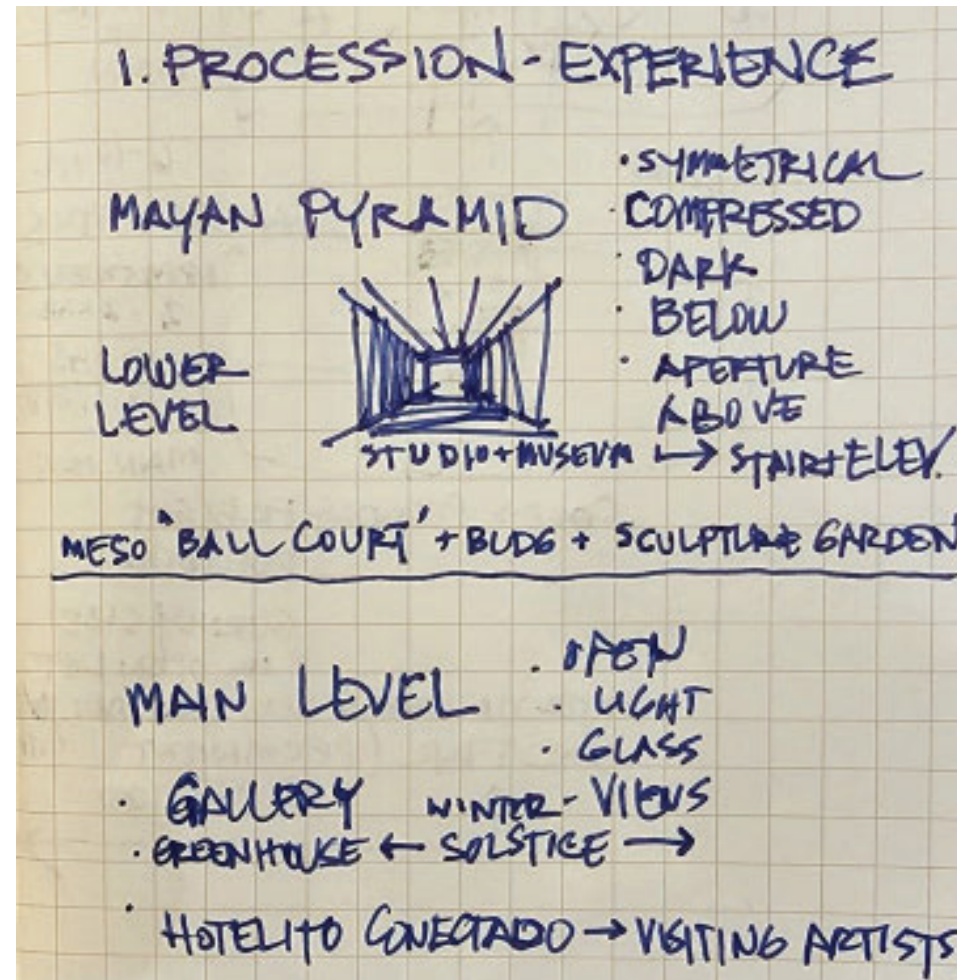 1. PROCESSION - EXPERIENCE
MAYAN PYRAMID
LOWER
LEVEL
• SYMMETRICAL
• COMPRESSED
• DARK
• BELOW
• APERTURE
ABOVE
STUDIO + MUSEUM → STAIR + ELEV.
MESO "BALL COURT" + BLDG + SCULPTURE GARDEN
MAIN LEVEL
• OPEN
• LIGHT
• GLASS
- VIEWS
• GALLERY WINTER
• GREENHOUSE ← SOLSTICE →
• HOTELITO CONECTADO → VISITING ARTISTS